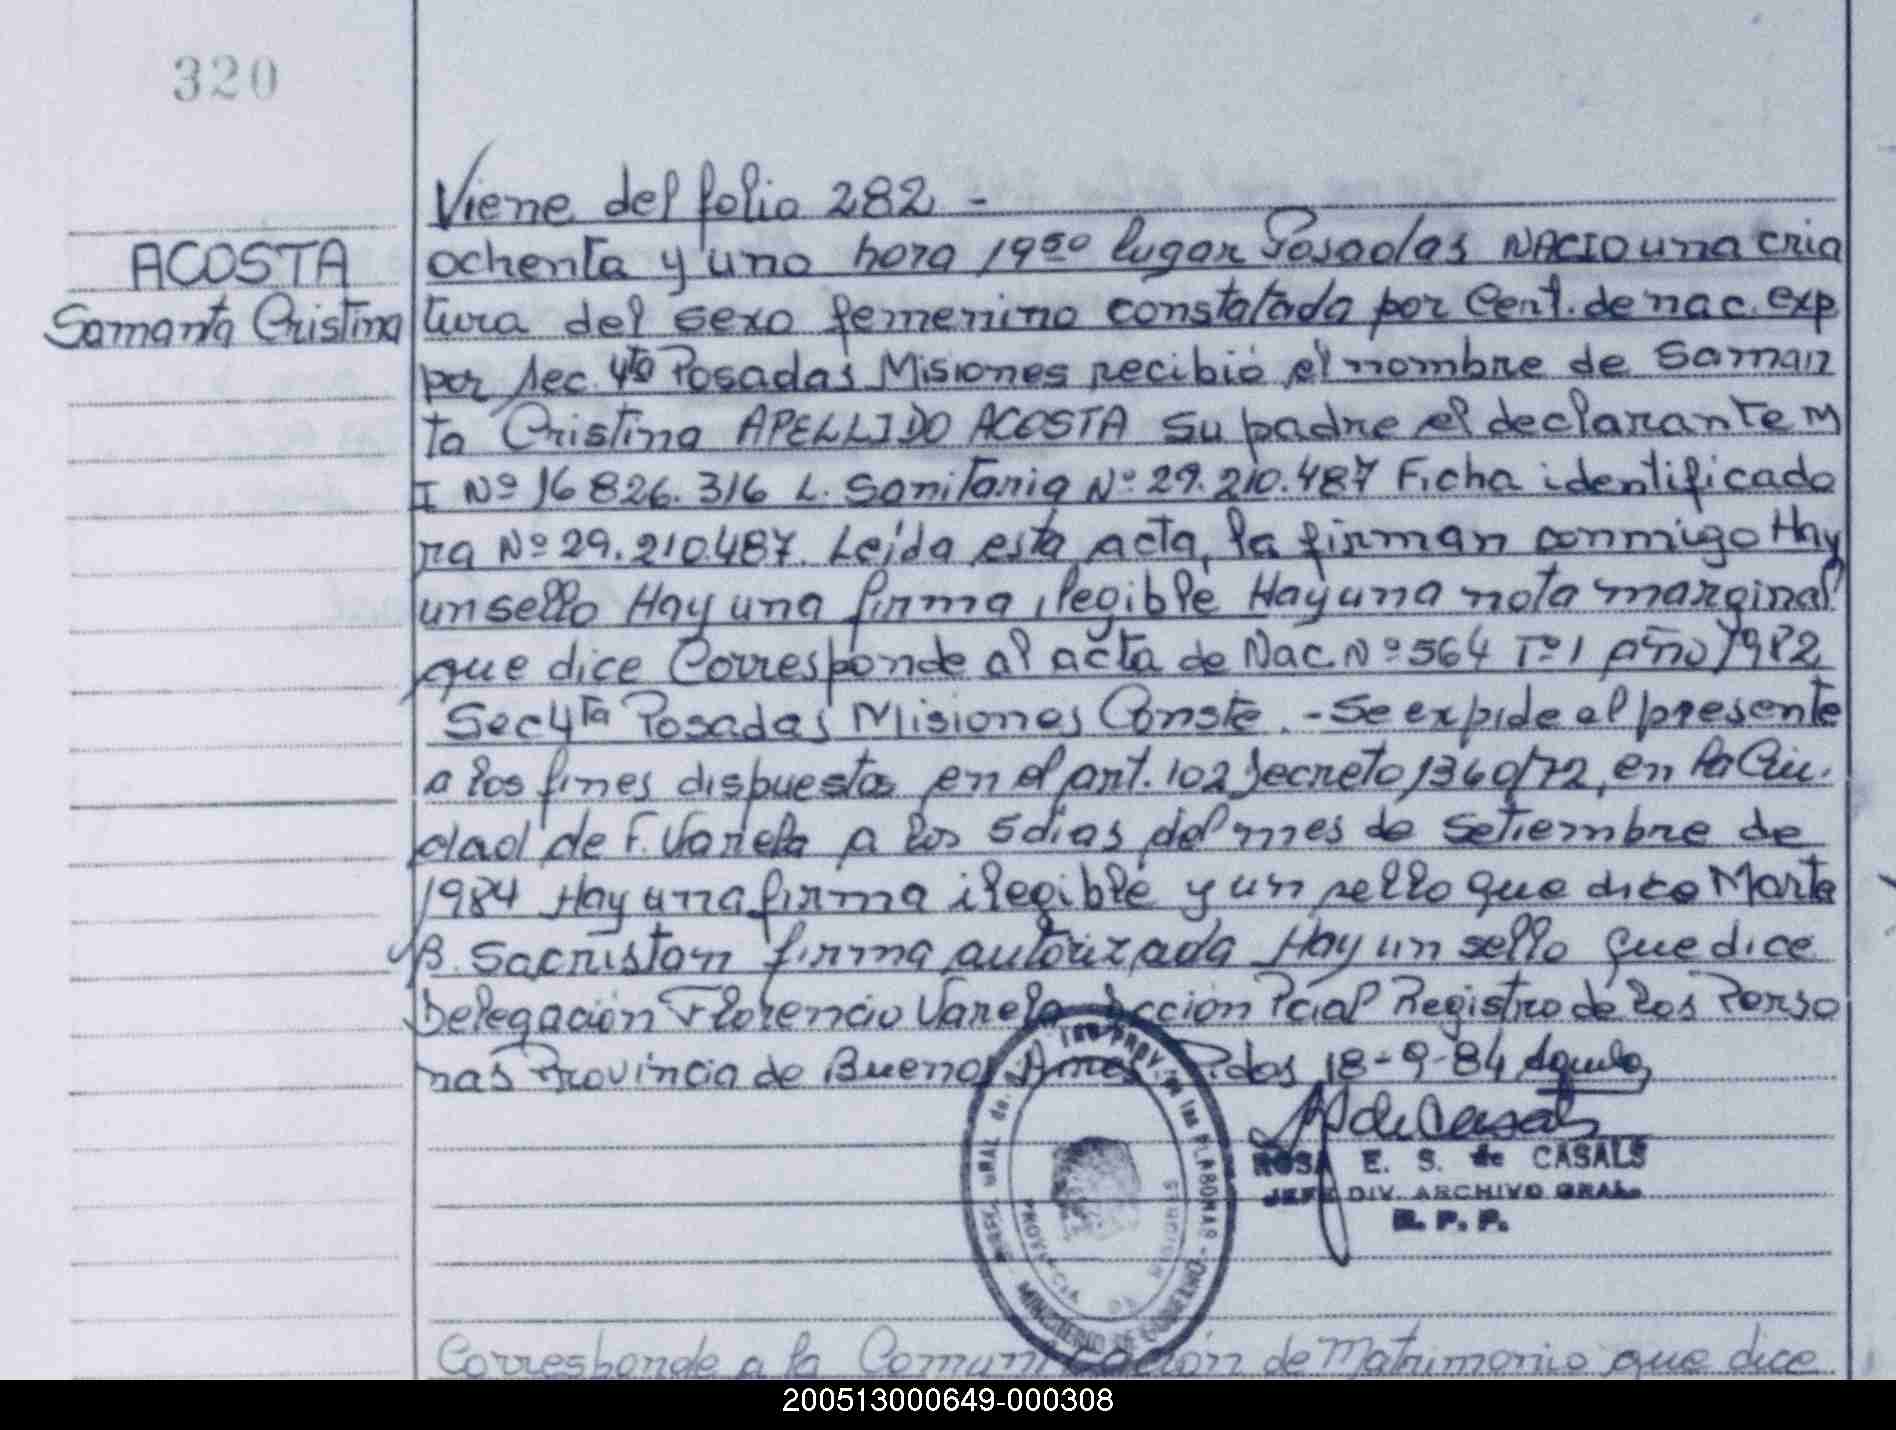 320
Viene del folio 282 -
ACOSTA
Samanta Cristina
ochenta y uno hora 19⁵⁰ lugar Posadas NACIO una cria
tura del sexo femenino constatada por Cert. de nac. exp
por sec. 4ta Posadas Misiones recibió el nombre de Saman
ta Cristina APELLIDO ACOSTA Su padre el declarante M
I Nº 16 826.316 L. Sanitaria Nº 29.210.487 Ficha identificado
ra Nº 29.210.487. Leída esta acta, la firman conmigo Hay
un sello Hay una firma ilegible Hay una nota marginal
que dice Corresponde al acta de Nac. Nº 564 Tº 1 Año 1982
Sec 4ta Posadas Misiones Conste. - Se expide el presente
a los fines dispuestos en el art. 102 Decreto 1360/72, en la Ciu.
dad de F. Varela a los 5 dias del mes de Setiembre de
1984 Hay una firma ilegible y un sello que dice Marta
B. Sacristan firma autorizada Hay un sello que dice
Delegación Florencio Varela Pcial Registro de las Perso
nas Provincia de Buenos Aires 18-9-84
ROSA E. S. de CASALS
JEFE DIV. ARCHIVO GRAL.
R. P. P.
PROVINCIA DE MISIONES
MINISTERIO DE GOBIERNO
Corresponde a la Comunicación de Matrimonio que dice
200513000649-000308